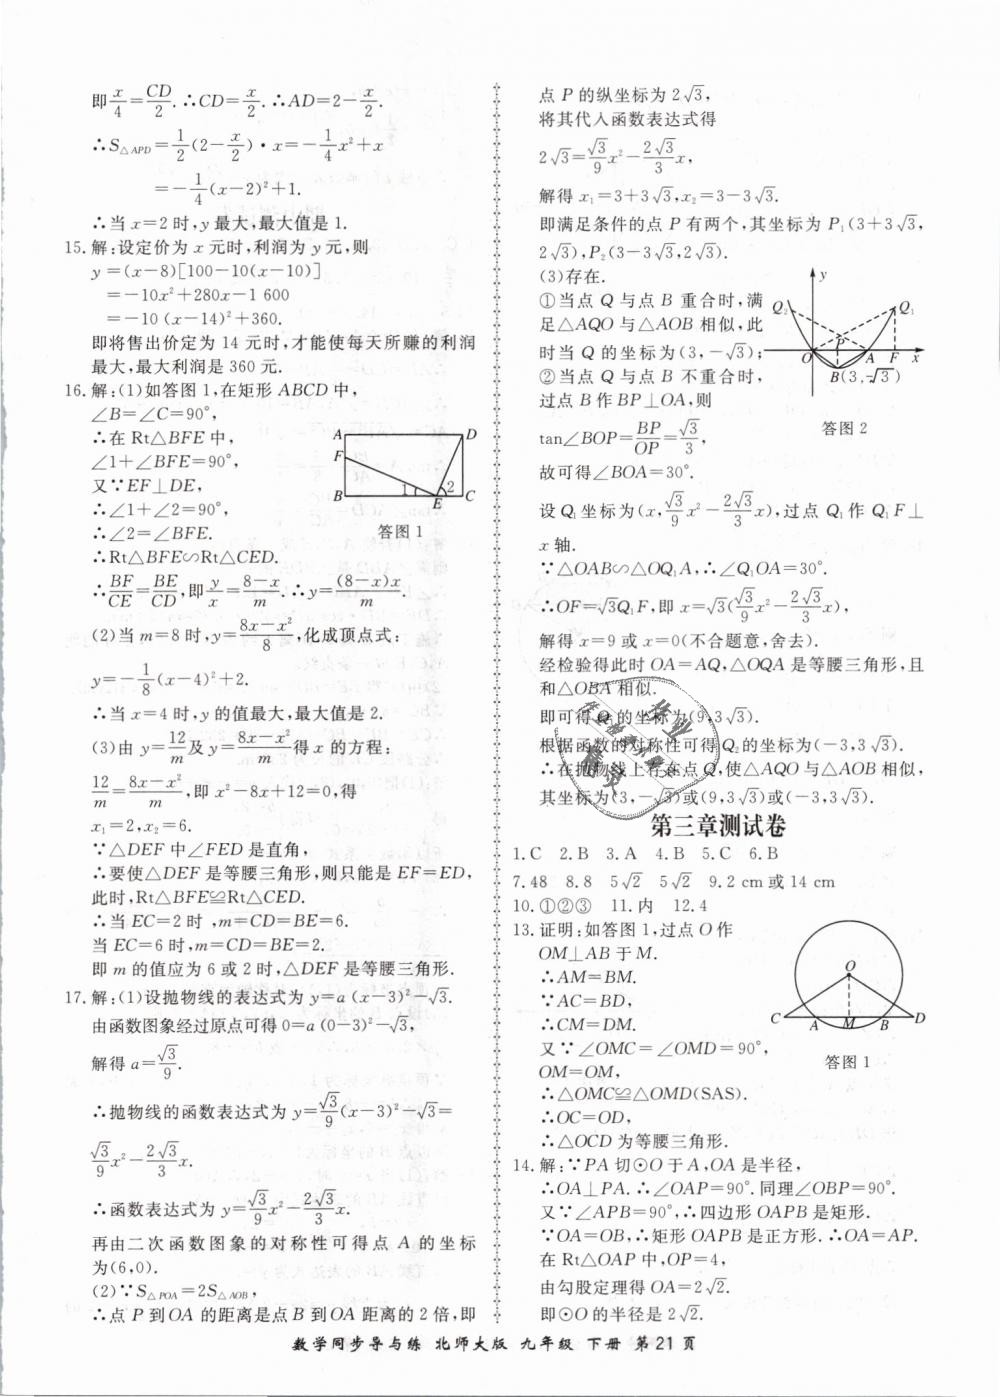 即x/4=CD/2.∴CD=x/2.∴AD=2-x/2.
∴S△APD=1/2(2-x/2)·x=-1/4x²+x
=-1/4(x-2)²+1.
∴当x=2时,y最大,最大值是1.
15.解:设定价为x元时,利润为y元,则
y=(x-8)[100-10(x-10)]
=-10x²+280x-1 600
=-10(x-14)²+360.
即将售出价定为14元时,才能使每天所赚的利润
最大,最大利润是360元.
16.解:(1)如答图1,在矩形ABCD中,
∠B=∠C=90°,
∴在Rt△BFE中,
∠1+∠BFE=90°,
又∵EF⊥DE,
∴∠1+∠2=90°,
∴∠2=∠BFE.
∴Rt△BFE∽Rt△CED.
A D
F
B 1 E 2 C
答图1
∴BF/CE=BE/CD,即y/x=(8-x)/m.∴y=(8-x)x/m.
(2)当m=8时,y=(8x-x²)/8,化成顶点式:
y=-1/8(x-4)²+2.
∴当x=4时,y的值最大,最大值是2.
(3)由y=12/m及y=(8x-x²)/m得x的方程:
12/m=(8x-x²)/m,即x²-8x+12=0,得
x₁=2,x₂=6.
∵△DEF中∠FED是直角,
∴要使△DEF是等腰三角形,则只能是EF=ED,
此时,Rt△BFE≌Rt△CED.
∴当EC=2时,m=CD=BE=6.
当EC=6时,m=CD=BE=2.
即m的值应为6或2时,△DEF是等腰三角形.
17.解:(1)设抛物线的表达式为y=a(x-3)²-√3.
由函数图象经过原点可得0=a(0-3)²-√3,
解得a=√3/9.
∴抛物线的函数表达式为y=√3/9(x-3)²-√3=
√3/9x²-2√3/3x.
∴函数表达式为y=√3/9x²-2√3/3x.
再由二次函数图象的对称性可得点A的坐标
为(6,0).
(2)∵S△POA=2S△AOB,
∴点P到OA的距离是点B到OA距离的2倍,即
点P的纵坐标为2√3,
将其代入函数表达式得
2√3=√3/9x²-2√3/3x,
解得x₁=3+3√3,x₂=3-3√3.
即满足条件的点P有两个,其坐标为P₁(3+3√3,
2√3),P₂(3-3√3,2√3).
(3)存在.
①当点Q与点B重合时,满
足△AQO与△AOB相似,此
时当Q的坐标为(3,-√3);
②当点Q与点B不重合时,
过点B作BP⊥OA,则
y
Q₂ Q₁
O P A F x
B(3,-√3)
答图2
tan∠BOP=BP/OP=√3/3,
故可得∠BOA=30°.
设Q₁坐标为(x,√3/9x²-2√3/3x),过点Q₁作Q₁F⊥
x轴.
∵△OAB∽△OQ₁A,∴∠Q₁OA=30°.
∴OF=√3Q₁F,即x=√3(√3/9x²-2√3/3x),
解得x=9或x=0(不合题意,舍去).
经检验得此时OA=AQ,△OQA是等腰三角形,且
和△OBA相似.
即可得Q₁的坐标为(9,3√3).
根据函数的对称性可得Q₂的坐标为(-3,3√3).
∴在抛物线上存在点Q,使△AQO与△AOB相似,
其坐标为(3,-√3)或(9,3√3)或(-3,3√3).
第三章测试卷
1.C 2.B 3.A 4.B 5.C 6.B
7.48 8.8 5√2 5√2 9.2 cm或14 cm
10.①②③ 11.内 12.4
13.证明:如答图1,过点O作
OM⊥AB于M.
∴AM=BM.
∵AC=BD,
∴CM=DM.
又∵∠OMC=∠OMD=90°,
OM=OM,
∴△OMC≌△OMD(SAS).
∴OC=OD,
∴△OCD为等腰三角形.
O
C A M B D
答图1
14.解:∵PA切⊙O于A,OA是半径,
∴OA⊥PA.∴∠OAP=90°.同理∠OBP=90°.
又∵∠APB=90°,∴四边形OAPB是矩形.
∵OA=OB,∴矩形OAPB是正方形.∴OA=AP.
在Rt△OAP中,OP=4,
由勾股定理得OA=2√2.
即⊙O的半径是2√2.
数学同步导与练 北师大版 九年级 下册 第21页